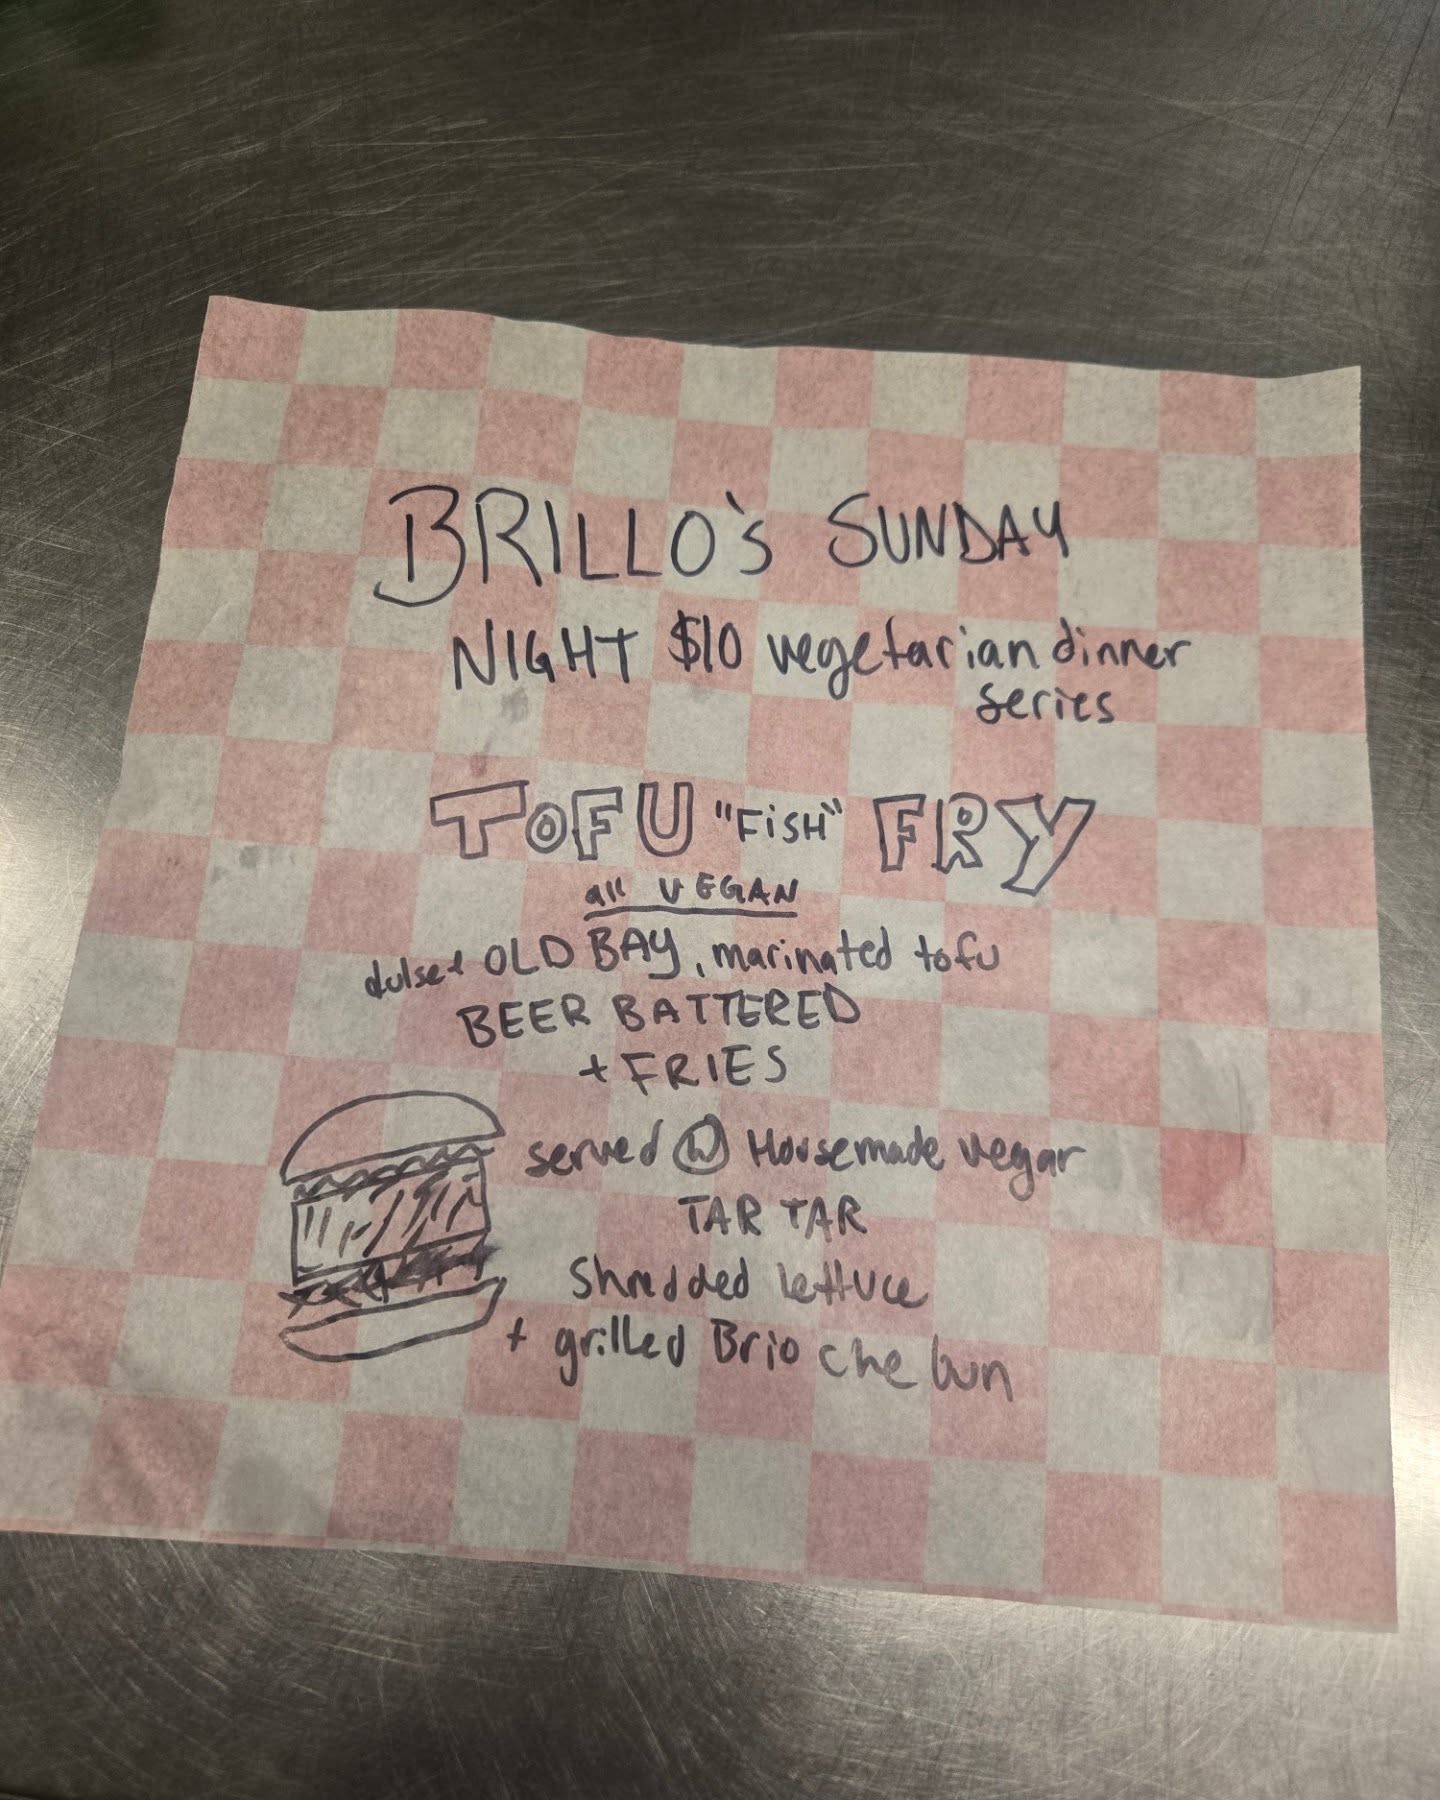 BRILLO's SUNDAY
NIGHT $10 vegetarian dinner
series
TOFU "FISH" FRY
all VEGAN
dulse + OLD BAY, marinated tofu
BEER BATTERED
+ FRIES
served w Housemade vegan
TAR TAR
Shredded lettuce
+ grilled Brioche bun